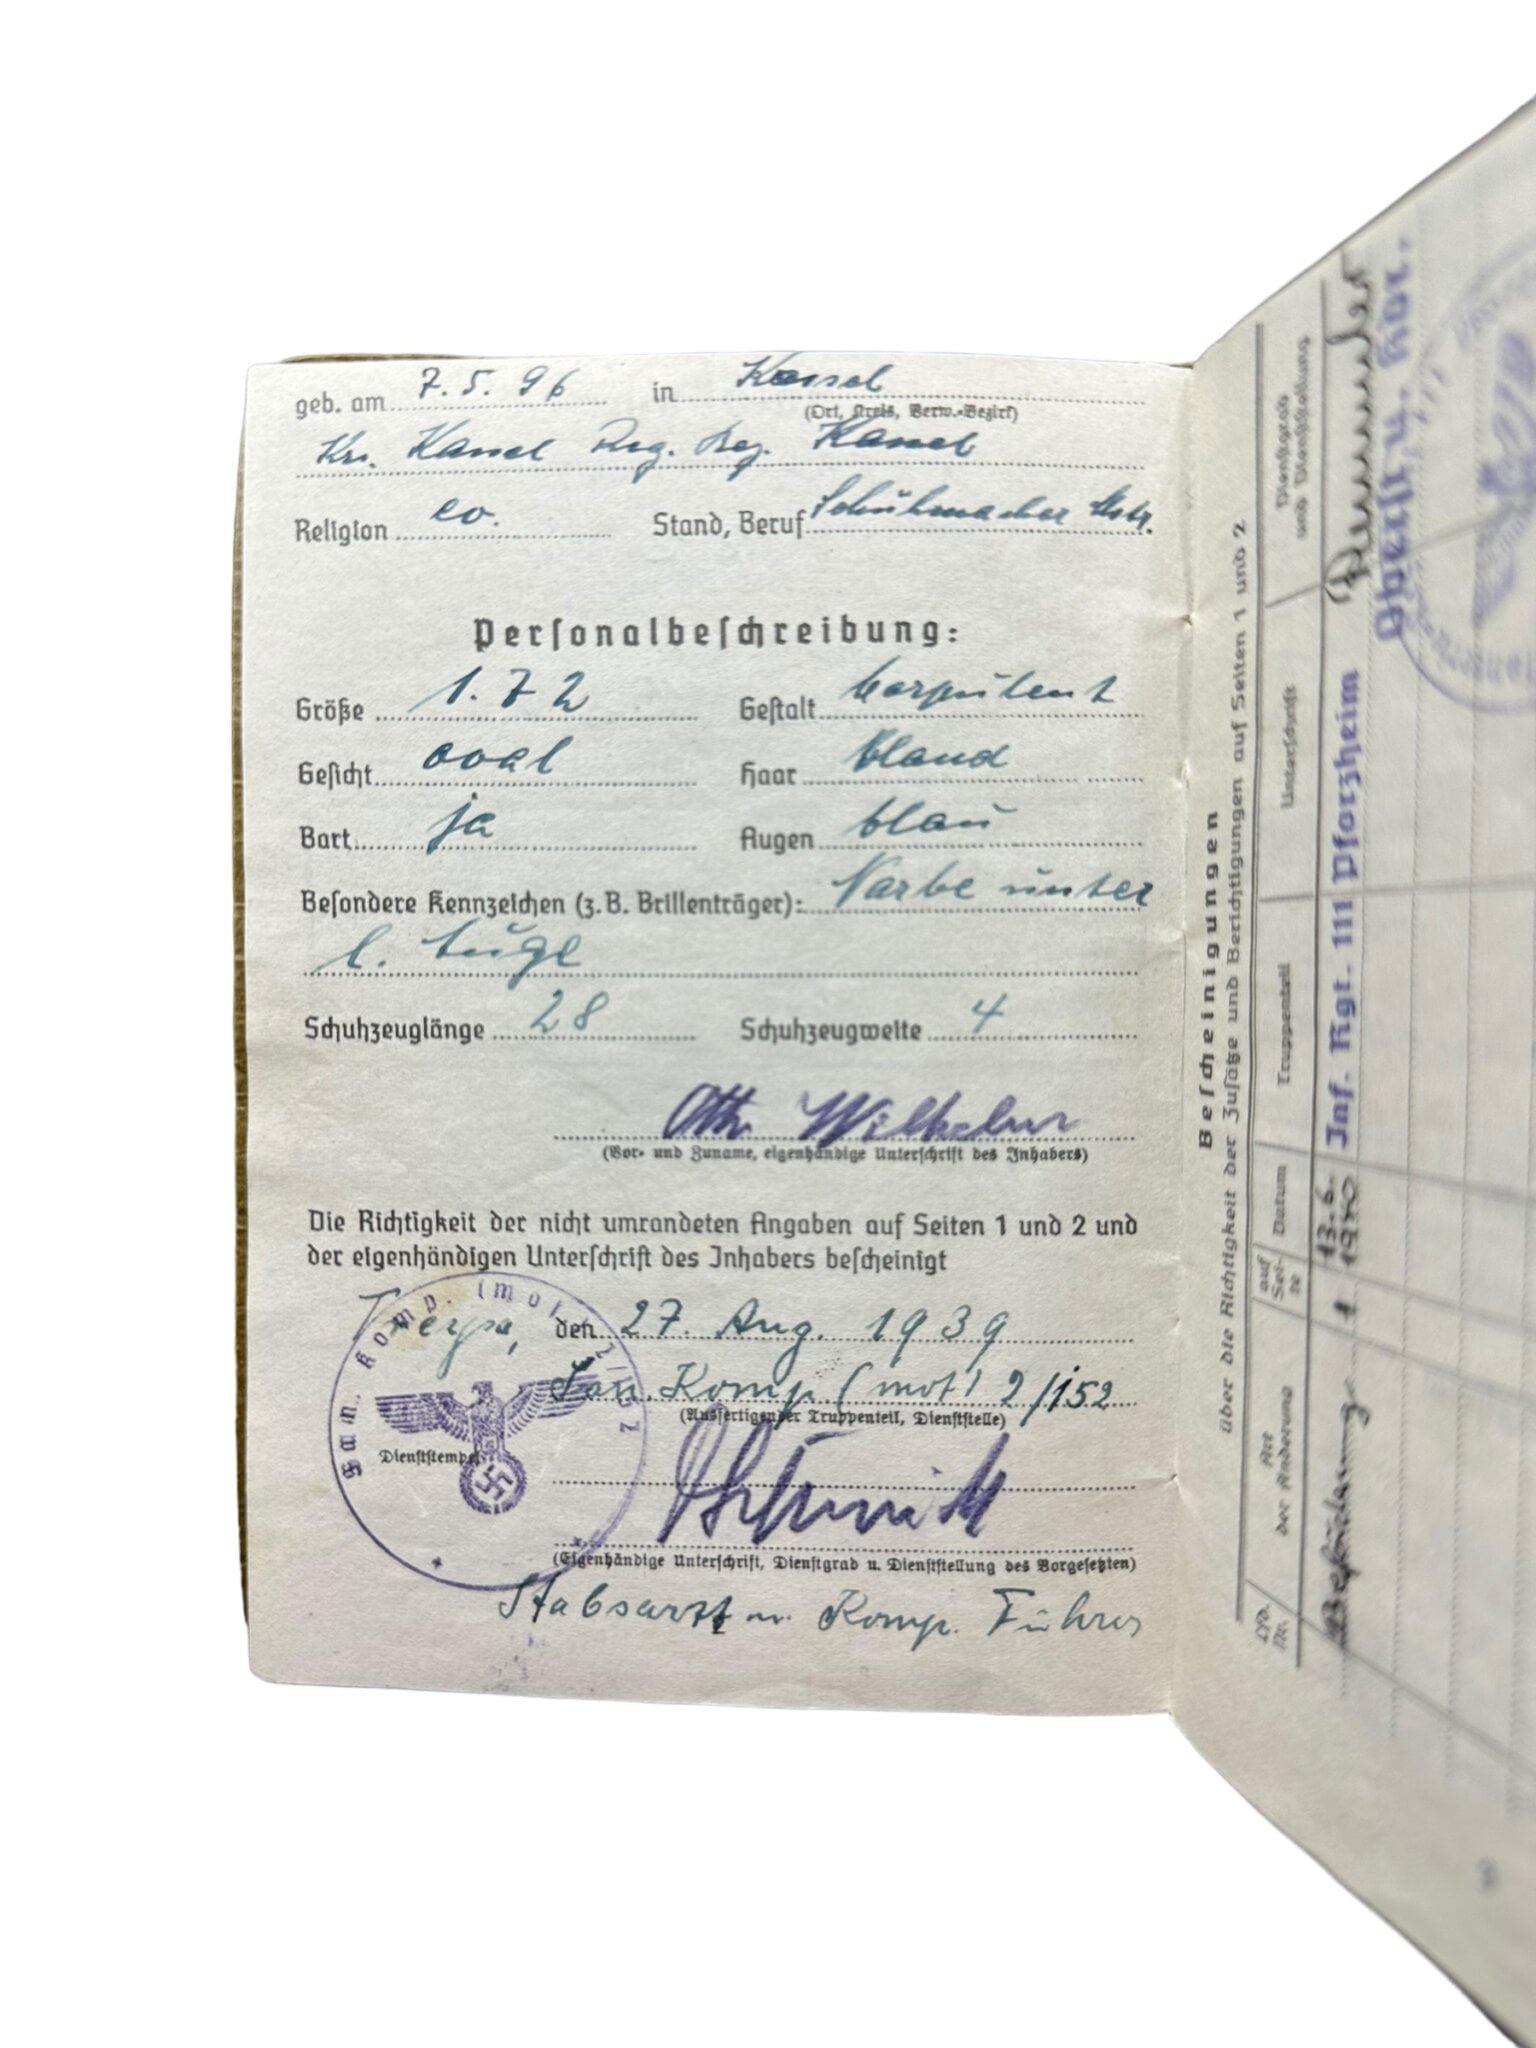 geb. am 7.5.96 in Kassel
(Ort, Kreis, Verw.-Bezirk)
Krs. Kassel Reg. Bez. Kassel
Religion ev. Stand, Beruf Schuhmacher Mstr.
Personalbeschreibung:
Größe 1.72 Gestalt korpulent
Gesicht oval Haar blond
Bart ja Augen blau
Besondere Kennzeichen (z.B. Brillenträger): Narbe unter
l. Auge
Schuhzeuglänge 28 Schuhzeugweite 4
Otto Wilhelm
(Vor- und Zuname, eigenhändige Unterschrift des Inhabers)
Die Richtigkeit der nicht umrandeten Angaben auf Seiten 1 und 2 und
der eigenhändigen Unterschrift des Inhabers bescheinigt
den 27. Aug. 1939
San. Komp. (mot) 2/152
(Ausfertigender Truppenteil, Dienststelle)
San. Komp. (mot) 2/152
Dienststempel
(Eigenhändige Unterschrift, Dienstgrad u. Dienststellung des Vorgesetzten)
Stabsarzt u. Komp. Führer
Bescheinigungen
über die Richtigkeit der Zusätze und Berichtigungen auf Seiten 1 und 2
Lfd. Nr. Art der Änderung auf Seite Datum Truppenteil Unterschrift Dienstgrad und Dienststellung
Beförderung 1 13.6. 1940 Inf. Rgt. 111 Pforzheim
Oberst u. Kdr.